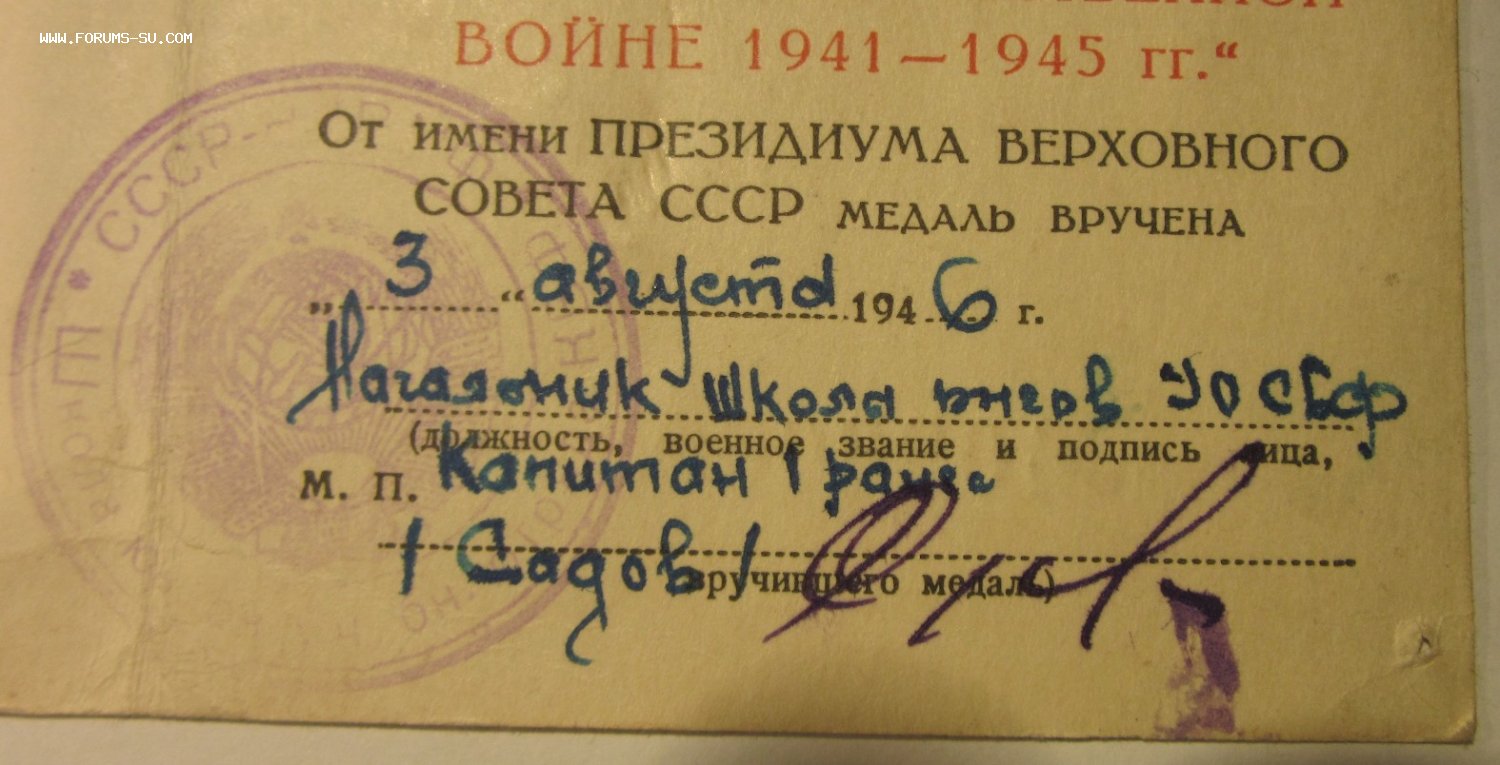 WWW.FORUMS-SU.COM
ВОЙНЕ 1941—1945 гг.“
От имени ПРЕЗИДИУМА ВЕРХОВНОГО
СОВЕТА СССР медаль вручена
„ 3 “ августа 1946 г.
Начальник Школы юнгов УОСБФ
(должность, военное звание и подпись лица,
М. П. Капитан 1 ранга
/ Садов /
вручившего медаль)
СССР